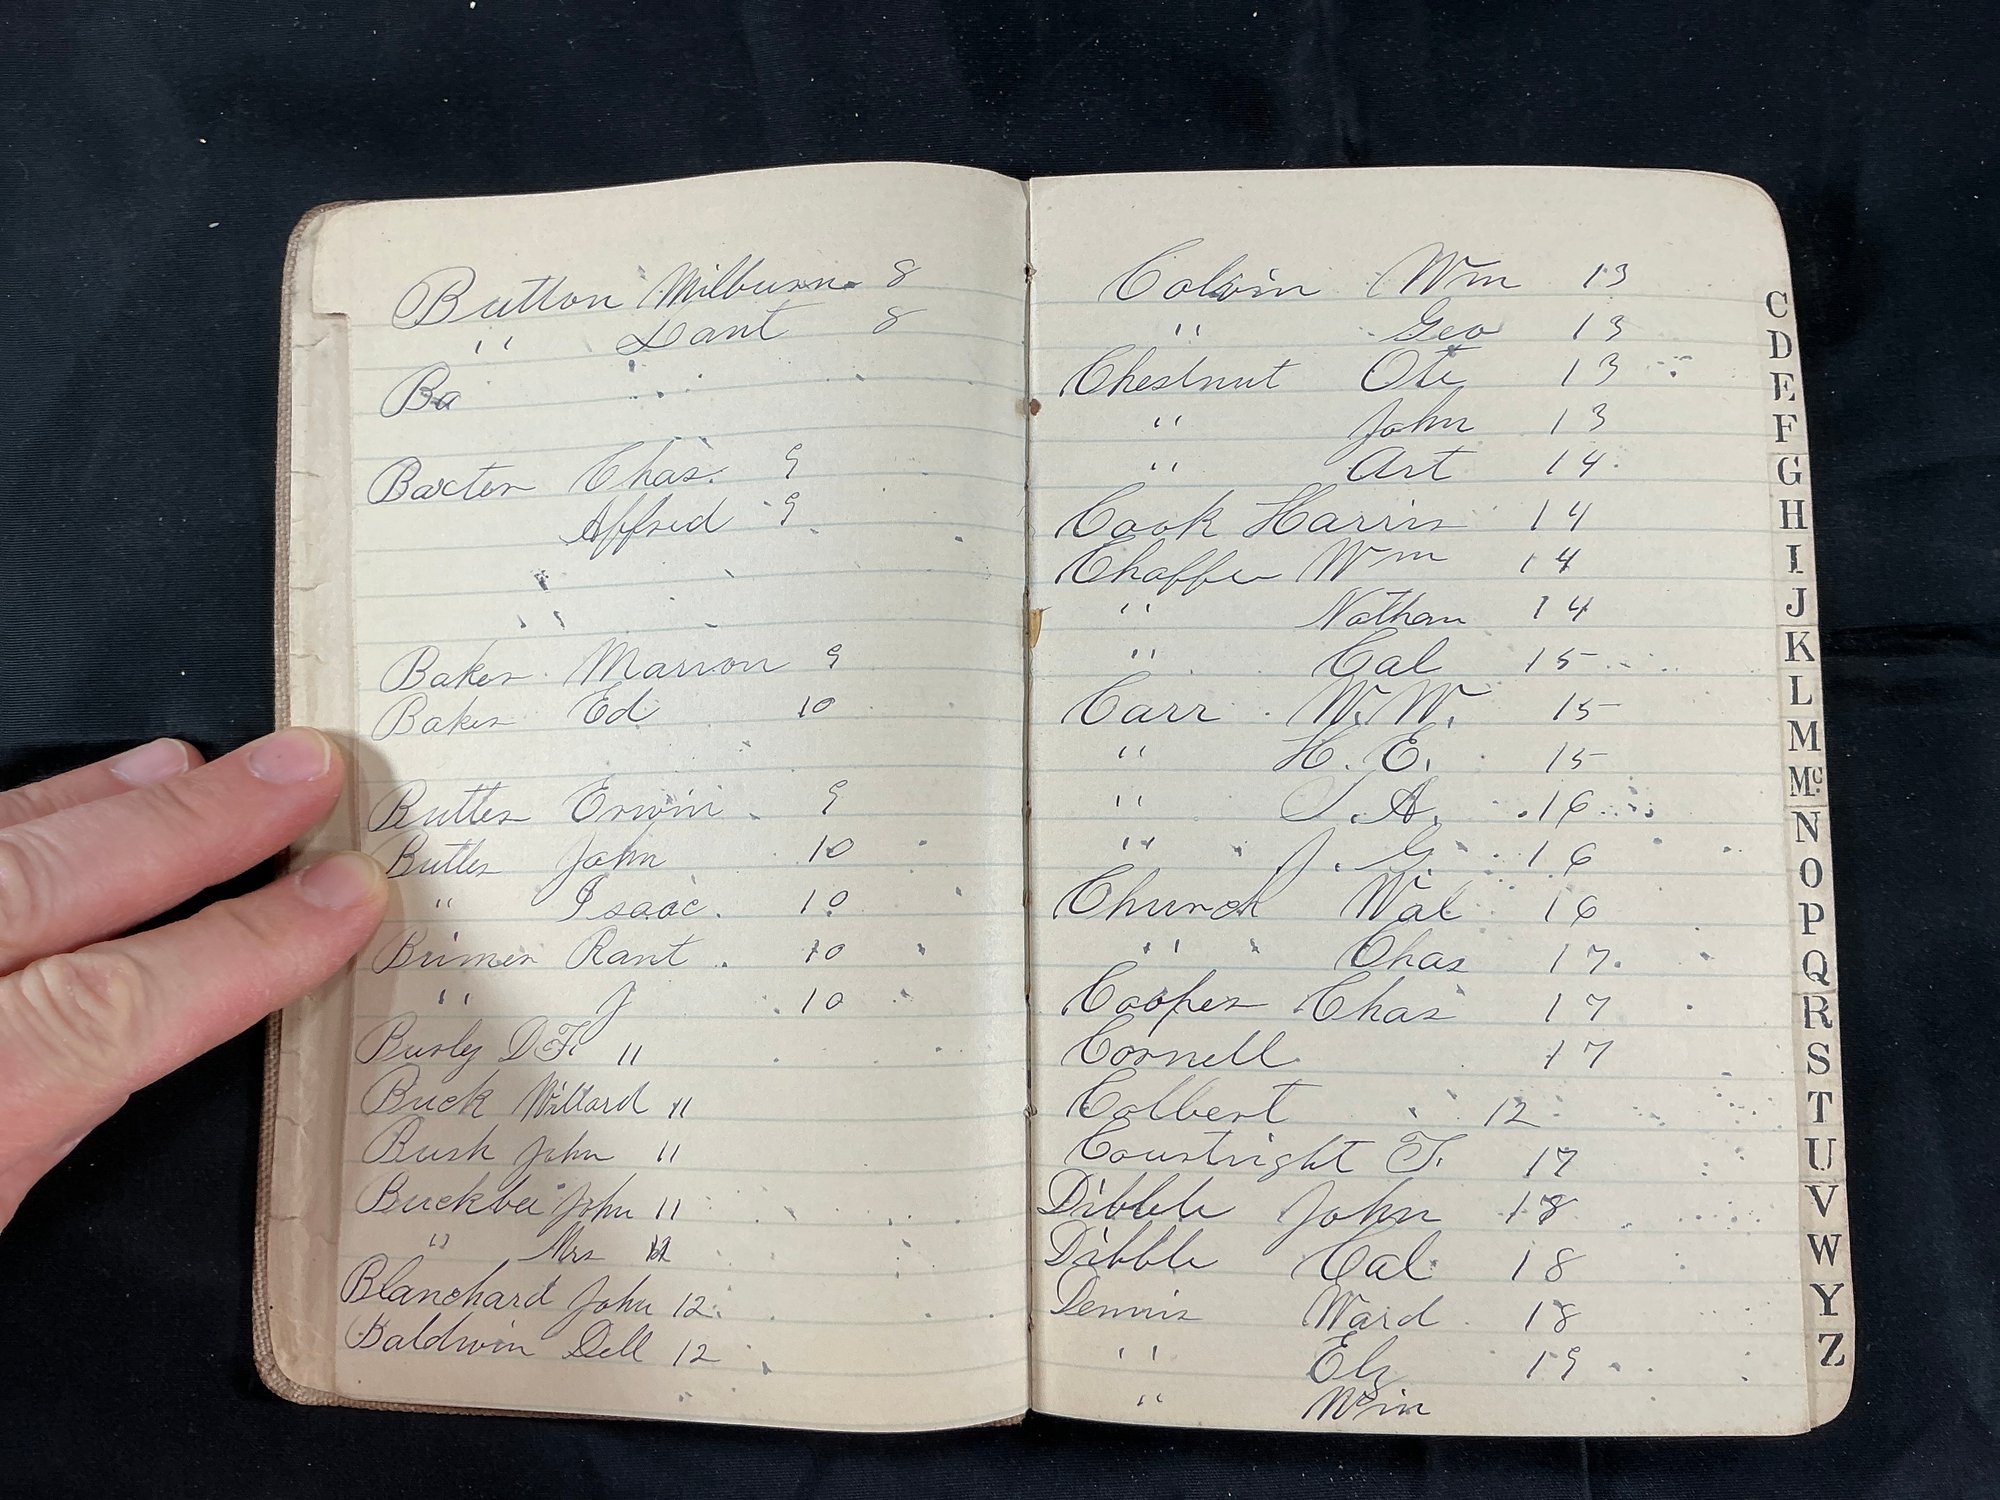 Button Milburn 8
" Dant 8
Ba
Baxter Chas. 9
Alfred 9
Baker Marion 9
Baker Ed 10
Butler Erwin 9
Butler John 10
" Isaac. 10
Brimer Rant 10
" J 10
Burly D.F. 11
Buck Willard 11
Bush John 11
Buckbee John 11
" Mrs 12
Blanchard John 12
Baldwin Dell 12
Colvin Wm 13
" Geo 13
Chestnut Ote 13
" John 13
" Art 14
Cook Harris 14
Chaffee Wm 14
" Nathan 14
" Cal 15
Carr W. W. 15
" H. E. 15
" S. A. 16
" J. G. 16
Church Wal 16
" Chas 17
Cooper Chas 17
Cornell 17
Colbert 12
Courtright T. 17
Dibble John 18
Dibble Cal 18
Dennis Ward 18
" Ely 19
" Win
C
D
E
F
G
H
I
J
K
L
M
Mc
N
O
P
Q
R
S
T
U
V
W
Y
Z